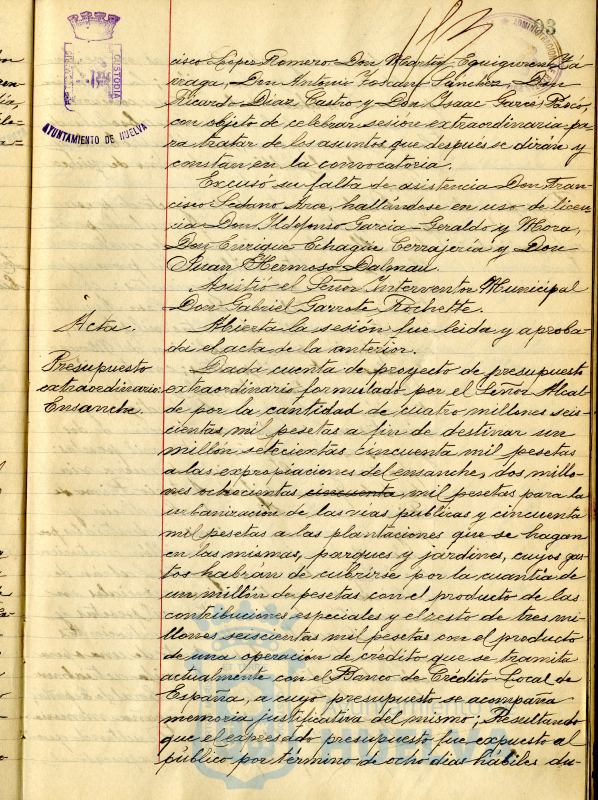 93
CUSTODIA
AYUNTAMIENTO DE HUELVA
cisco López Romero Don Martín Eguiguren
rraga, Don Antonio Toscano Sánchez, Don
Ricardo Díaz Castro y Don Isaac Garcés Pasco,
con objeto de celebrar sesión extraordinaria pa-
ra tratar de los asuntos que después se dirán y
constan en la convocatoria.
Excusó su falta de asistencia Don Fran-
cisco Sedano Arce, hallándose en uso de licen-
cia Don Ildefonso García-Geraldo y Mora,
Don Enrique Echague Cerrajería y Don
Juan Hermoso Dalmau.
Asistió el Señor Interventor Municipal
Don Gabriel Garrote Rochette.
Acta.
Abierta la sesión fue leida y aproba-
da el acta de la anterior.
Presupuesto
extraordinario
Ensanche.
Dada cuenta de proyecto de presupuesto
extraordinario formulado por el Señor Alcal-
de por la cantidad de cuatro millones seis-
cientas mil pesetas a fin de destinar un
millón setecientas cincuenta mil pesetas
a las expropiaciones del ensanche, dos millo-
nes ochocientas cincuenta, mil pesetas para la
urbanización de las vías públicas y cincuenta
mil pesetas a las plantaciones que se hagan
en las mismas, parques y jardines, cuyos gas-
tos habrán de cubrirse por la cuantía de
un millón de pesetas con el producto de las
contribuciones especiales y el resto de tres mi-
llones seiscientas mil pesetas con el producto
de una operación de crédito que se tramita
actualmente con el Banco de Crédito Local de
España, a cuyo presupuesto se acompaña
memoria justificativa del mismo; Resultando
que el expresado presupuesto fue expuesto al
público por término de ocho días hábiles du-
Ayuntamiento
HUELVA